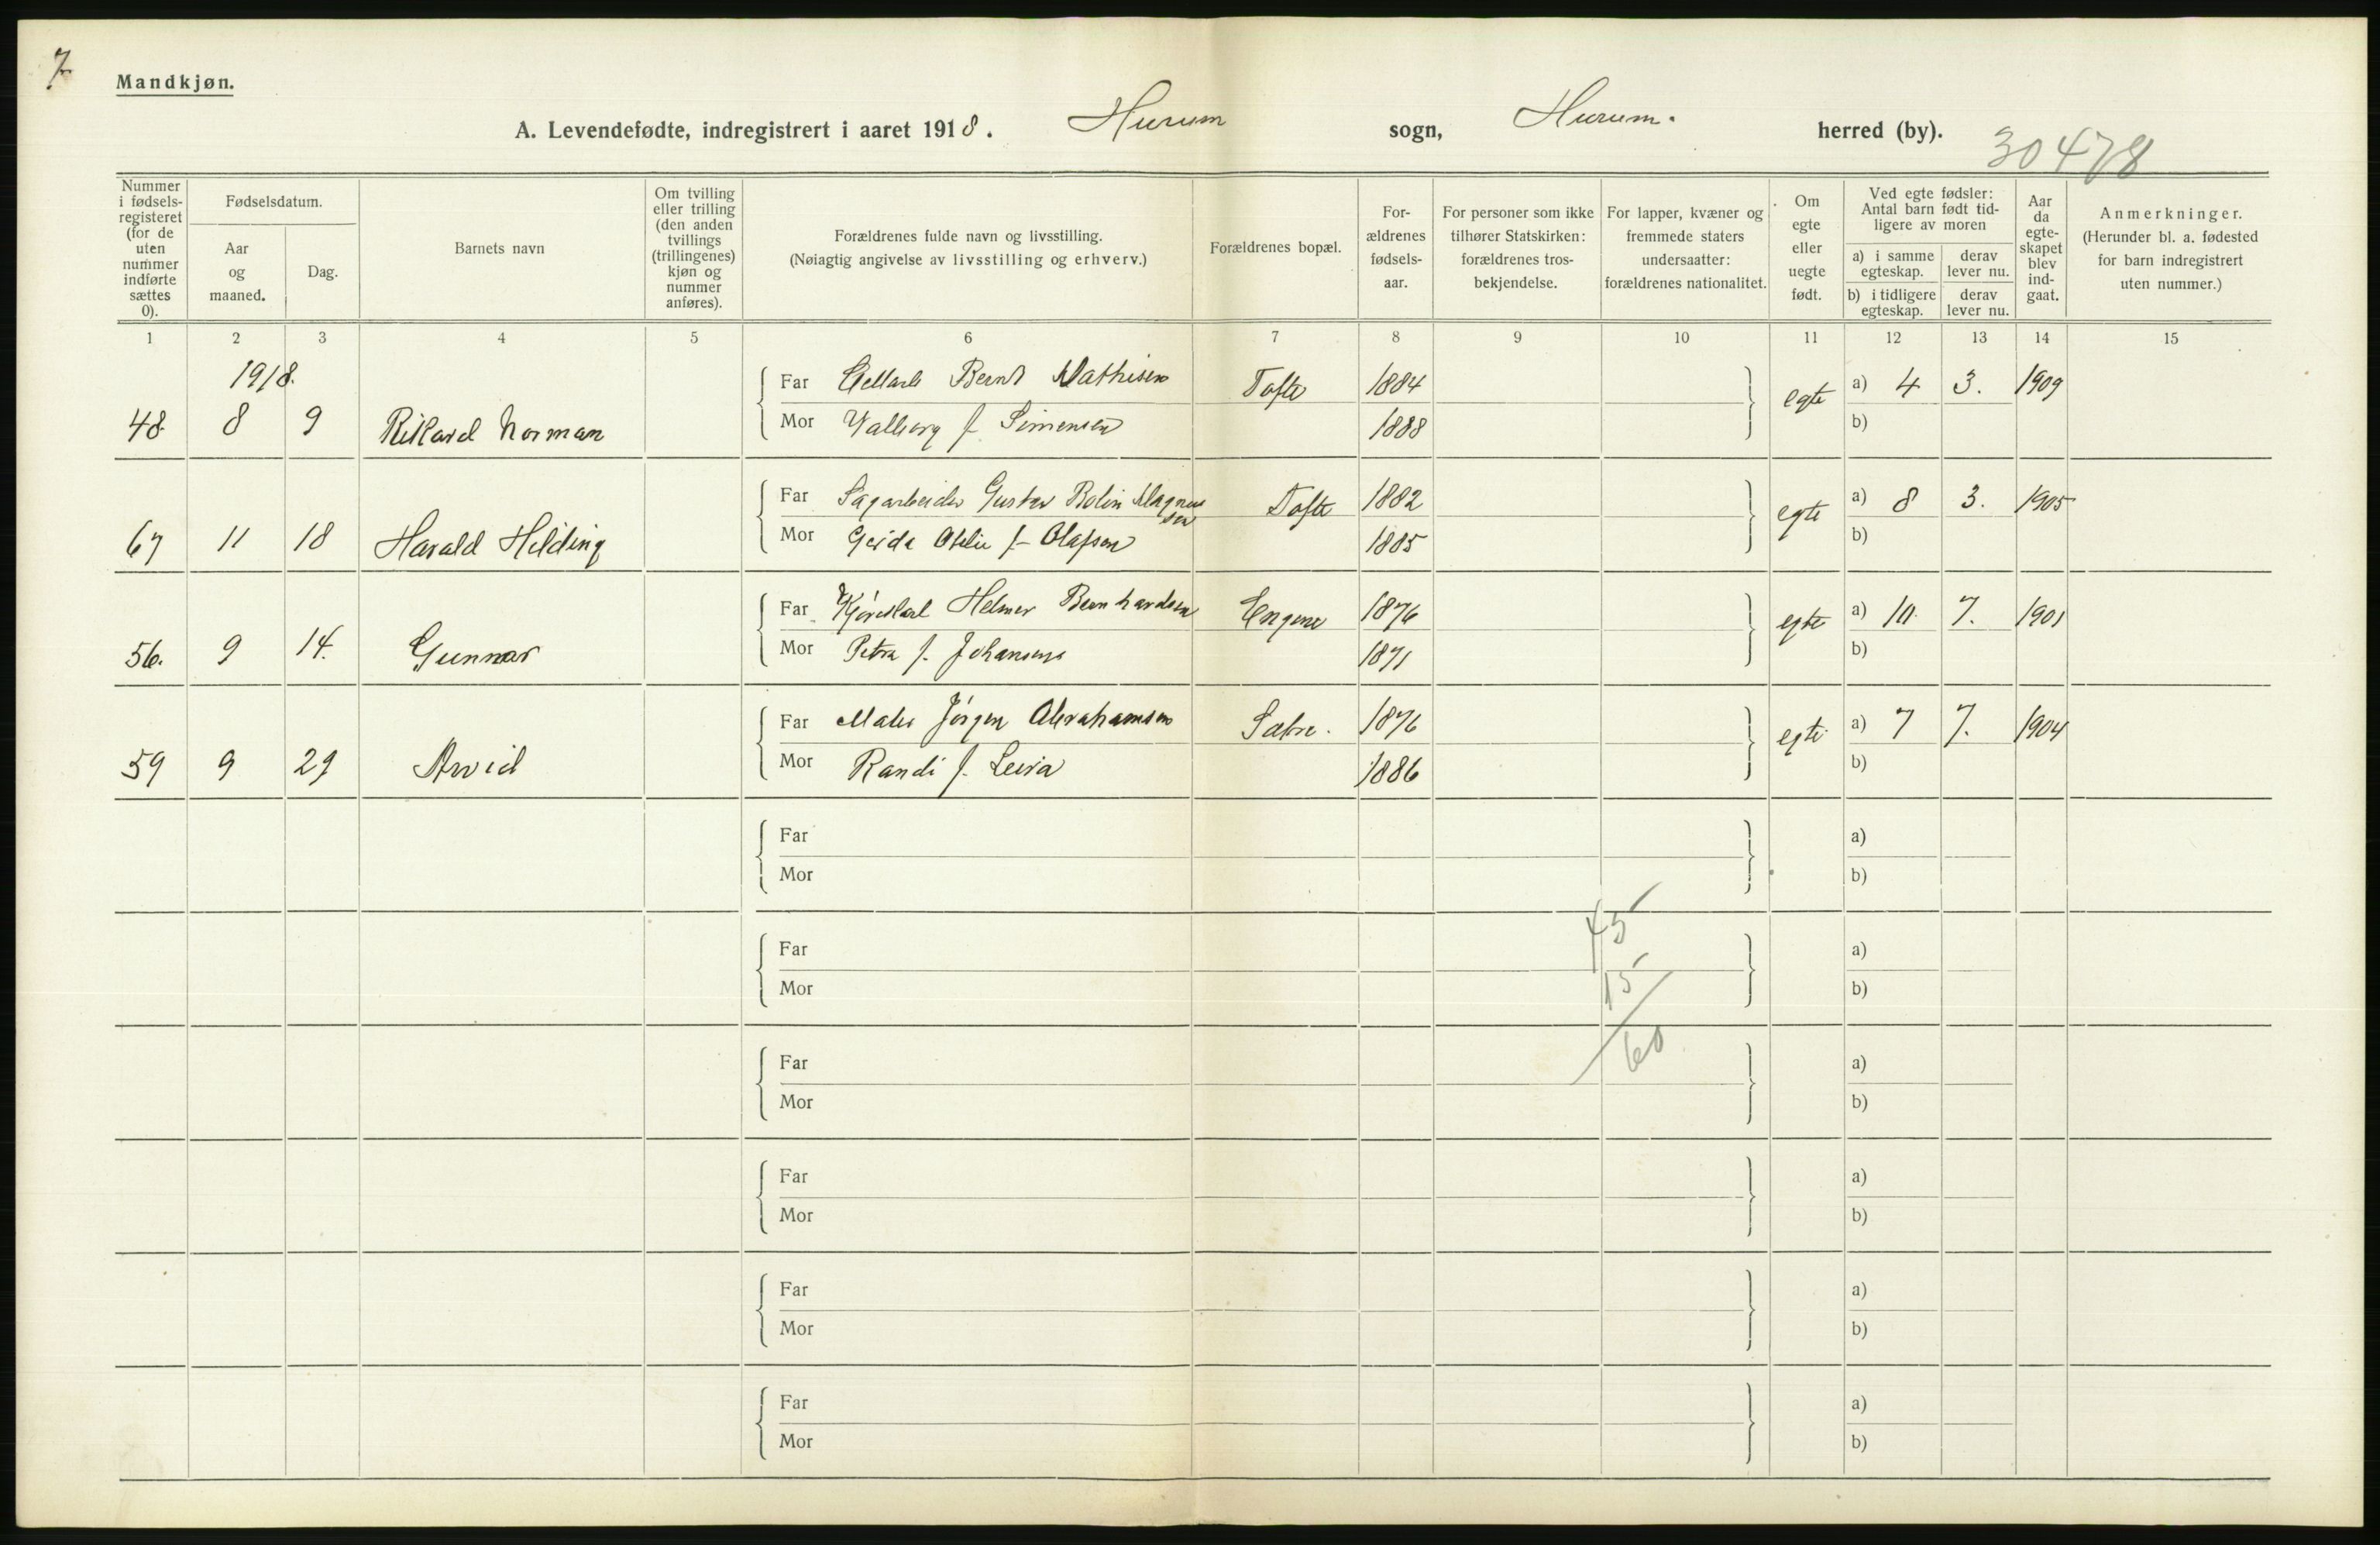 7
Mandkjøn.
A. Levendefødte, indregistrert i aaret 1918. Hurum sogn, Hurum. herred (by).
30478
Nummer i fødsels-registeret (for de uten nummer indførte sættes 0).
Fødselsdatum.
Aar og maaned.
Dag.
Barnets navn
Om tvilling eller trilling (den anden tvillings (trillingenes) kjøn og nummer anføres).
Forældrenes fulde navn og livsstilling.
(Nøiagtig angivelse av livsstilling og erhverv.)
Forældrenes bopæl.
For-ældrenes fødsels-aar.
For personer som ikke tilhører Statskirken: forældrenes tros-bekjendelse.
For lapper, kvæner og fremmede staters undersaatter: forældrenes nationalitet.
Om egte eller uegte født.
Ved egte fødsler: Antal barn født tid-ligere av moren
a) i samme egteskap.
derav lever nu.
b) i tidligere egteskap.
derav lever nu.
Aar da egte-skapet blev ind-gaat.
Anmerkninger.
(Herunder bl. a. fødested for barn indregistrert uten nummer.)
1 2 3 4 5 6 7 8 9 10 11 12 13 14 15
1918.
Far Bernt Mathisen Tofte 1884 egte a) 4 3. 1909
48 8 9 Rikard Norman Mor Valborg f. Simensen 1888 b)
Far Sagarbeider Gustav Bolin Magnus
sen Tofte 1882 egte a) 8 3. 1905
67 11 18 Harald Hilding Mor Gerda Otelie f. Olafsen 1885 b)
Far Kjørekarl Helmer Bernhardsen Engene 1876 egte a) 10. 7. 1901
56. 9 14. Gunnar Mor Petra f. Johansen 1871 b)
Far Maler Jörgen Abrahamsen Sætre. 1876 egte a) 7 7. 1904
59 9 29 Arvid Mor Randi f. Leira 1886 b)
Far a)
Mor b)
45
Far a)
15
Mor b)
60
Far a)
Mor b)
Far a)
Mor b)
Far a)
Mor b)
Far a)
Mor b)